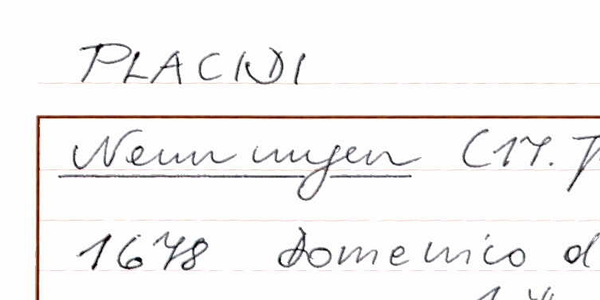 PLACIDI
Nennungen (17. J
1678 Domenico d